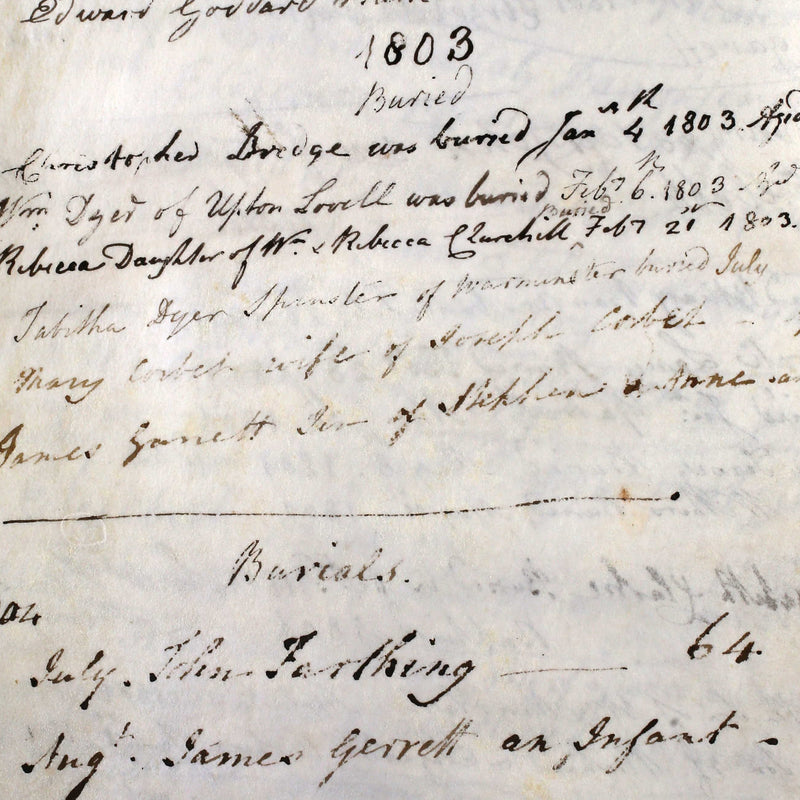 Edward Goddard
1803
Buried
Christopher Bredge was buried Janry 4th 1803 Aged
Wm Dyer of Upton Lovell was buried Feby 6th 1803 Aged
Rebecca Daughter of Wm & Rebecca Churchill Buried Feby 21st 1803.
Tabitha Dyer Spinster of Warminster buried July
Mary Corbet wife of Joseph Corbet
James Garrett Son of Stephen & Anne
Burials.
04
July. John Farthing 64.
Augt. James Gerrett an Infant -